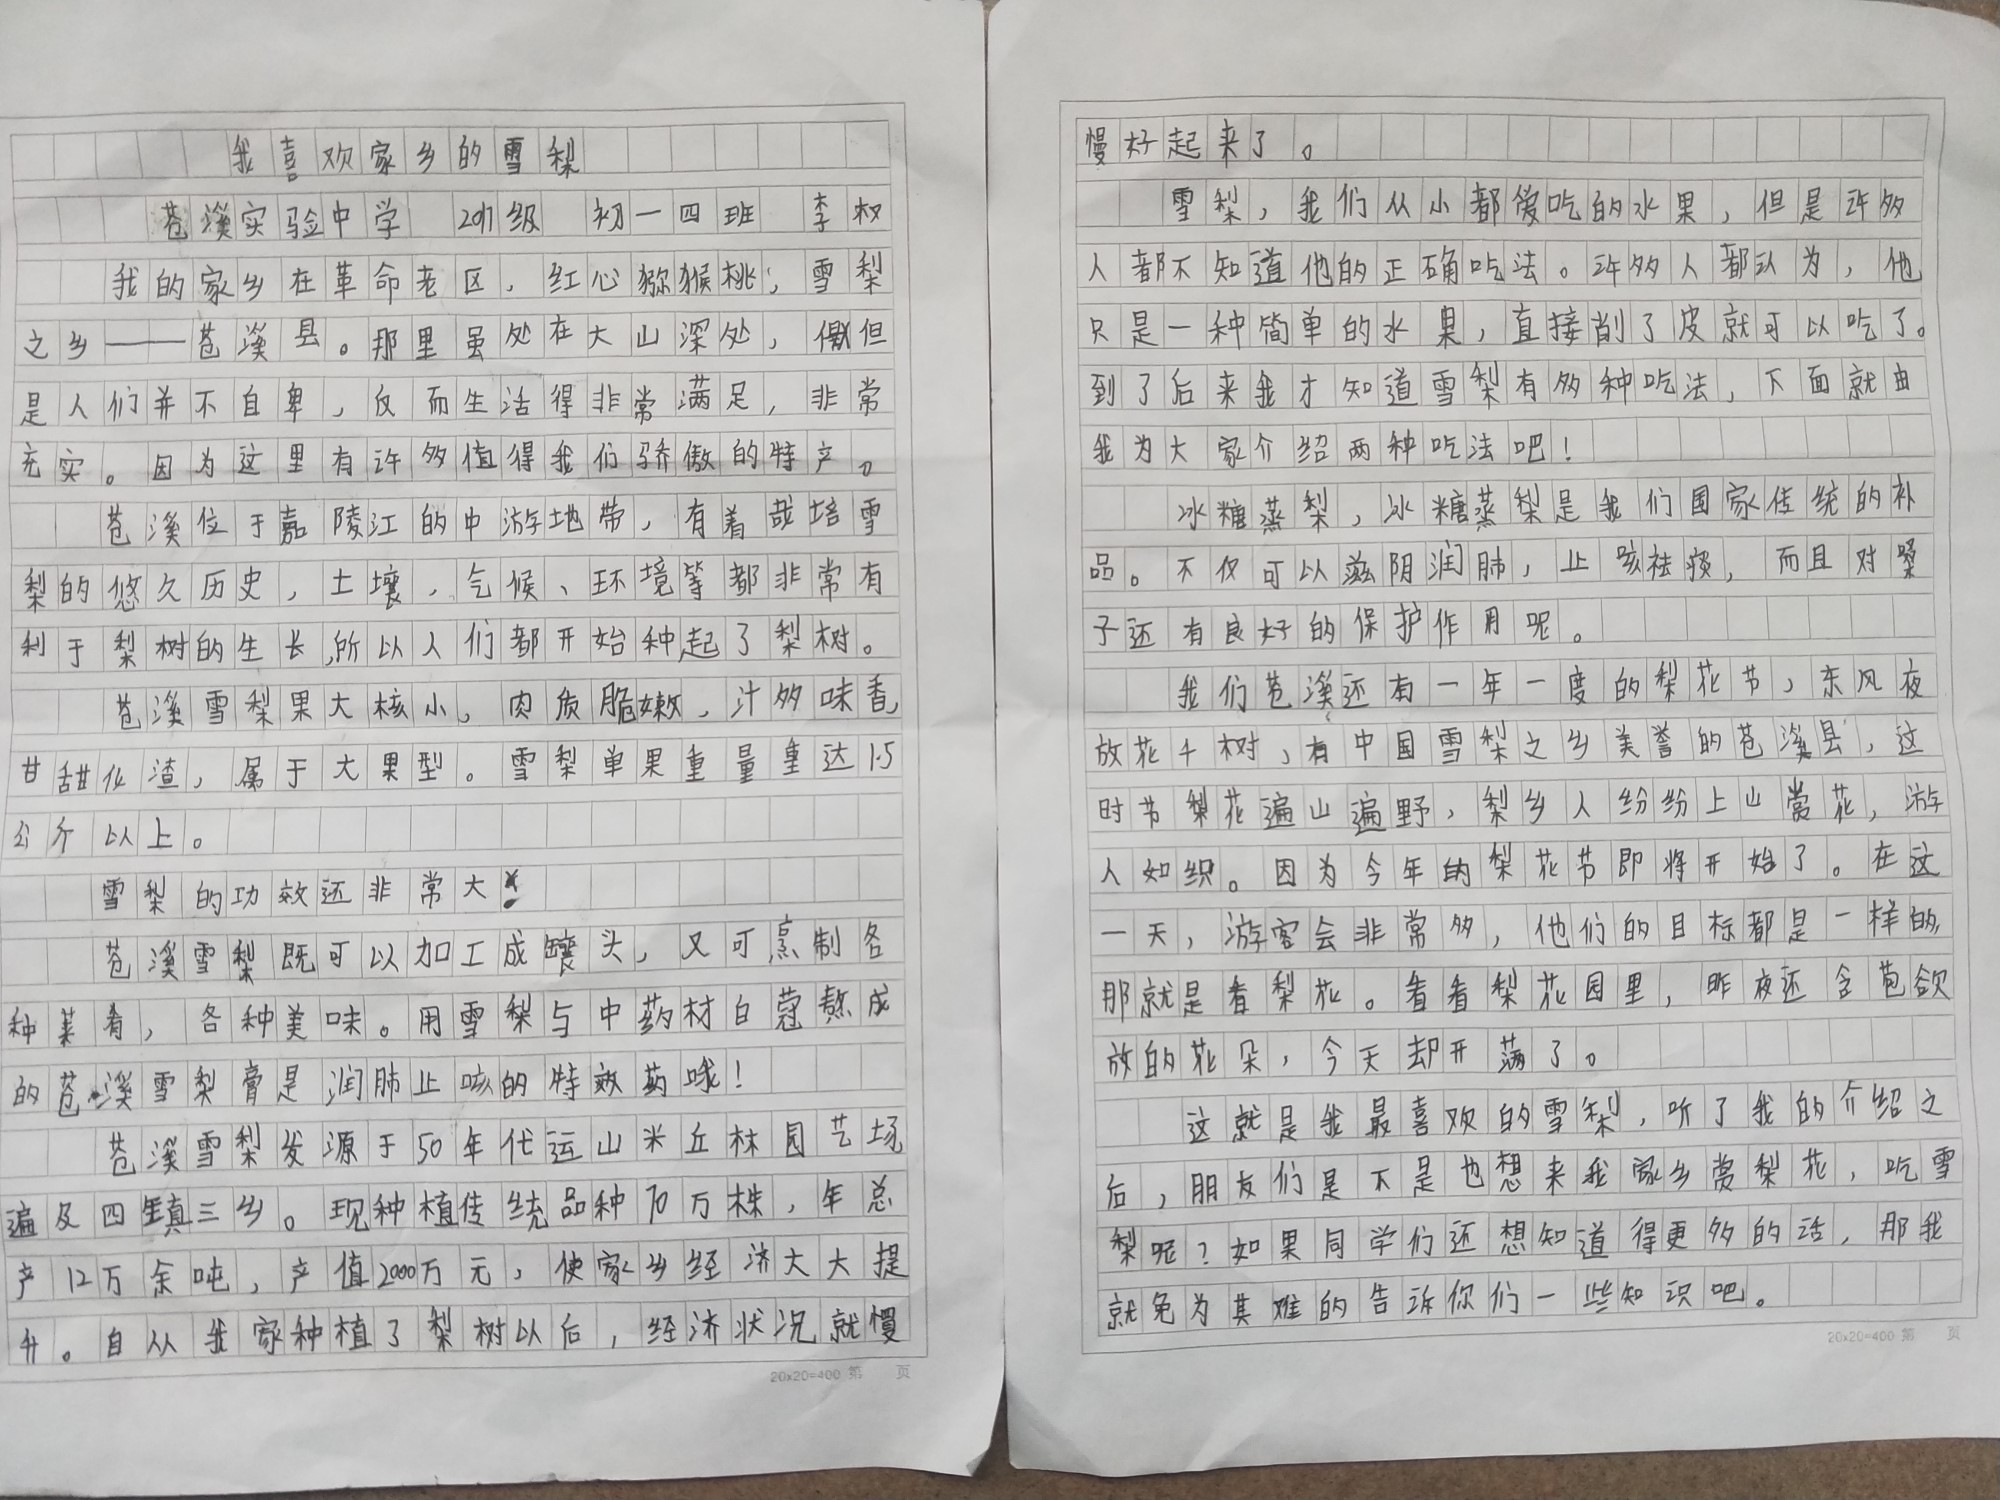 我喜欢家乡的雪梨
苍溪实验中学 2011级 初一四班 李权
我的家乡在革命老区，红心猕猴桃，雪梨
之乡——苍溪县。那里虽处在大山深处，但
是人们并不自卑，反而生活得非常满足，非常
充实。因为这里有许多值得我们骄傲的特产。
苍溪位于嘉陵江的中游地带，有着哉培雪
梨的悠久历史，土壤，气候、环境等都非常有
利于梨树的生长，所以人们都开始种起了梨树。
苍溪雪梨果大核小，肉质脆嫩，汁多味香，
甘甜化渣，属于大果型。雪梨单果重量重达1.5
公斤以上。
雪梨的功效还非常大！
苍溪雪梨既可以加工成罐头，又可烹制各
种菜肴，各种美味。用雪梨与中药材白蔻熬成
的苍溪雪梨膏是润肺止咳的特效药哦！
苍溪雪梨发源于50年代运山米丘林园艺场
遍及四镇三乡。现种植传统品种70万株，年总
产12万余吨，产值2000万元，使家乡经济大大提
升。自从我家种植了梨树以后，经济状况就慢
20x20=400 第 页
慢好起来了。
雪梨，我们从小都爱吃的水果，但是许多
人都不知道他的正确吃法。许多人都认为，他
只是一种简单的水果，直接削了皮就可以吃了。
到了后来我才知道雪梨有多种吃法，下面就由
我为大家介绍两种吃法吧！
冰糖蒸梨，冰糖蒸梨是我们国家传统的补
品。不仅可以滋阴润肺，止咳祛痰，而且对嗓
子还有良好的保护作用呢。
我们苍溪还有一年一度的梨花节，东风夜
放花千树，有中国雪梨之乡美誉的苍溪县，这
时节梨花遍山遍野，梨乡人纷纷上山赏花，游
人如织。因为今年的梨花节即将开始了。在这
一天，游客会非常多，他们的目标都是一样的，
那就是看梨花。看看梨花园里，昨夜还含苞欲
放的花朵，今天却开满了。
这就是我最喜欢的雪梨，听了我的介绍之
后，朋友们是不是也想来我家乡赏梨花，吃雪
梨呢？如果同学们还想知道得更多的话，那我
就免为其难的告诉你们一些知识吧。
20x20=400 第 页